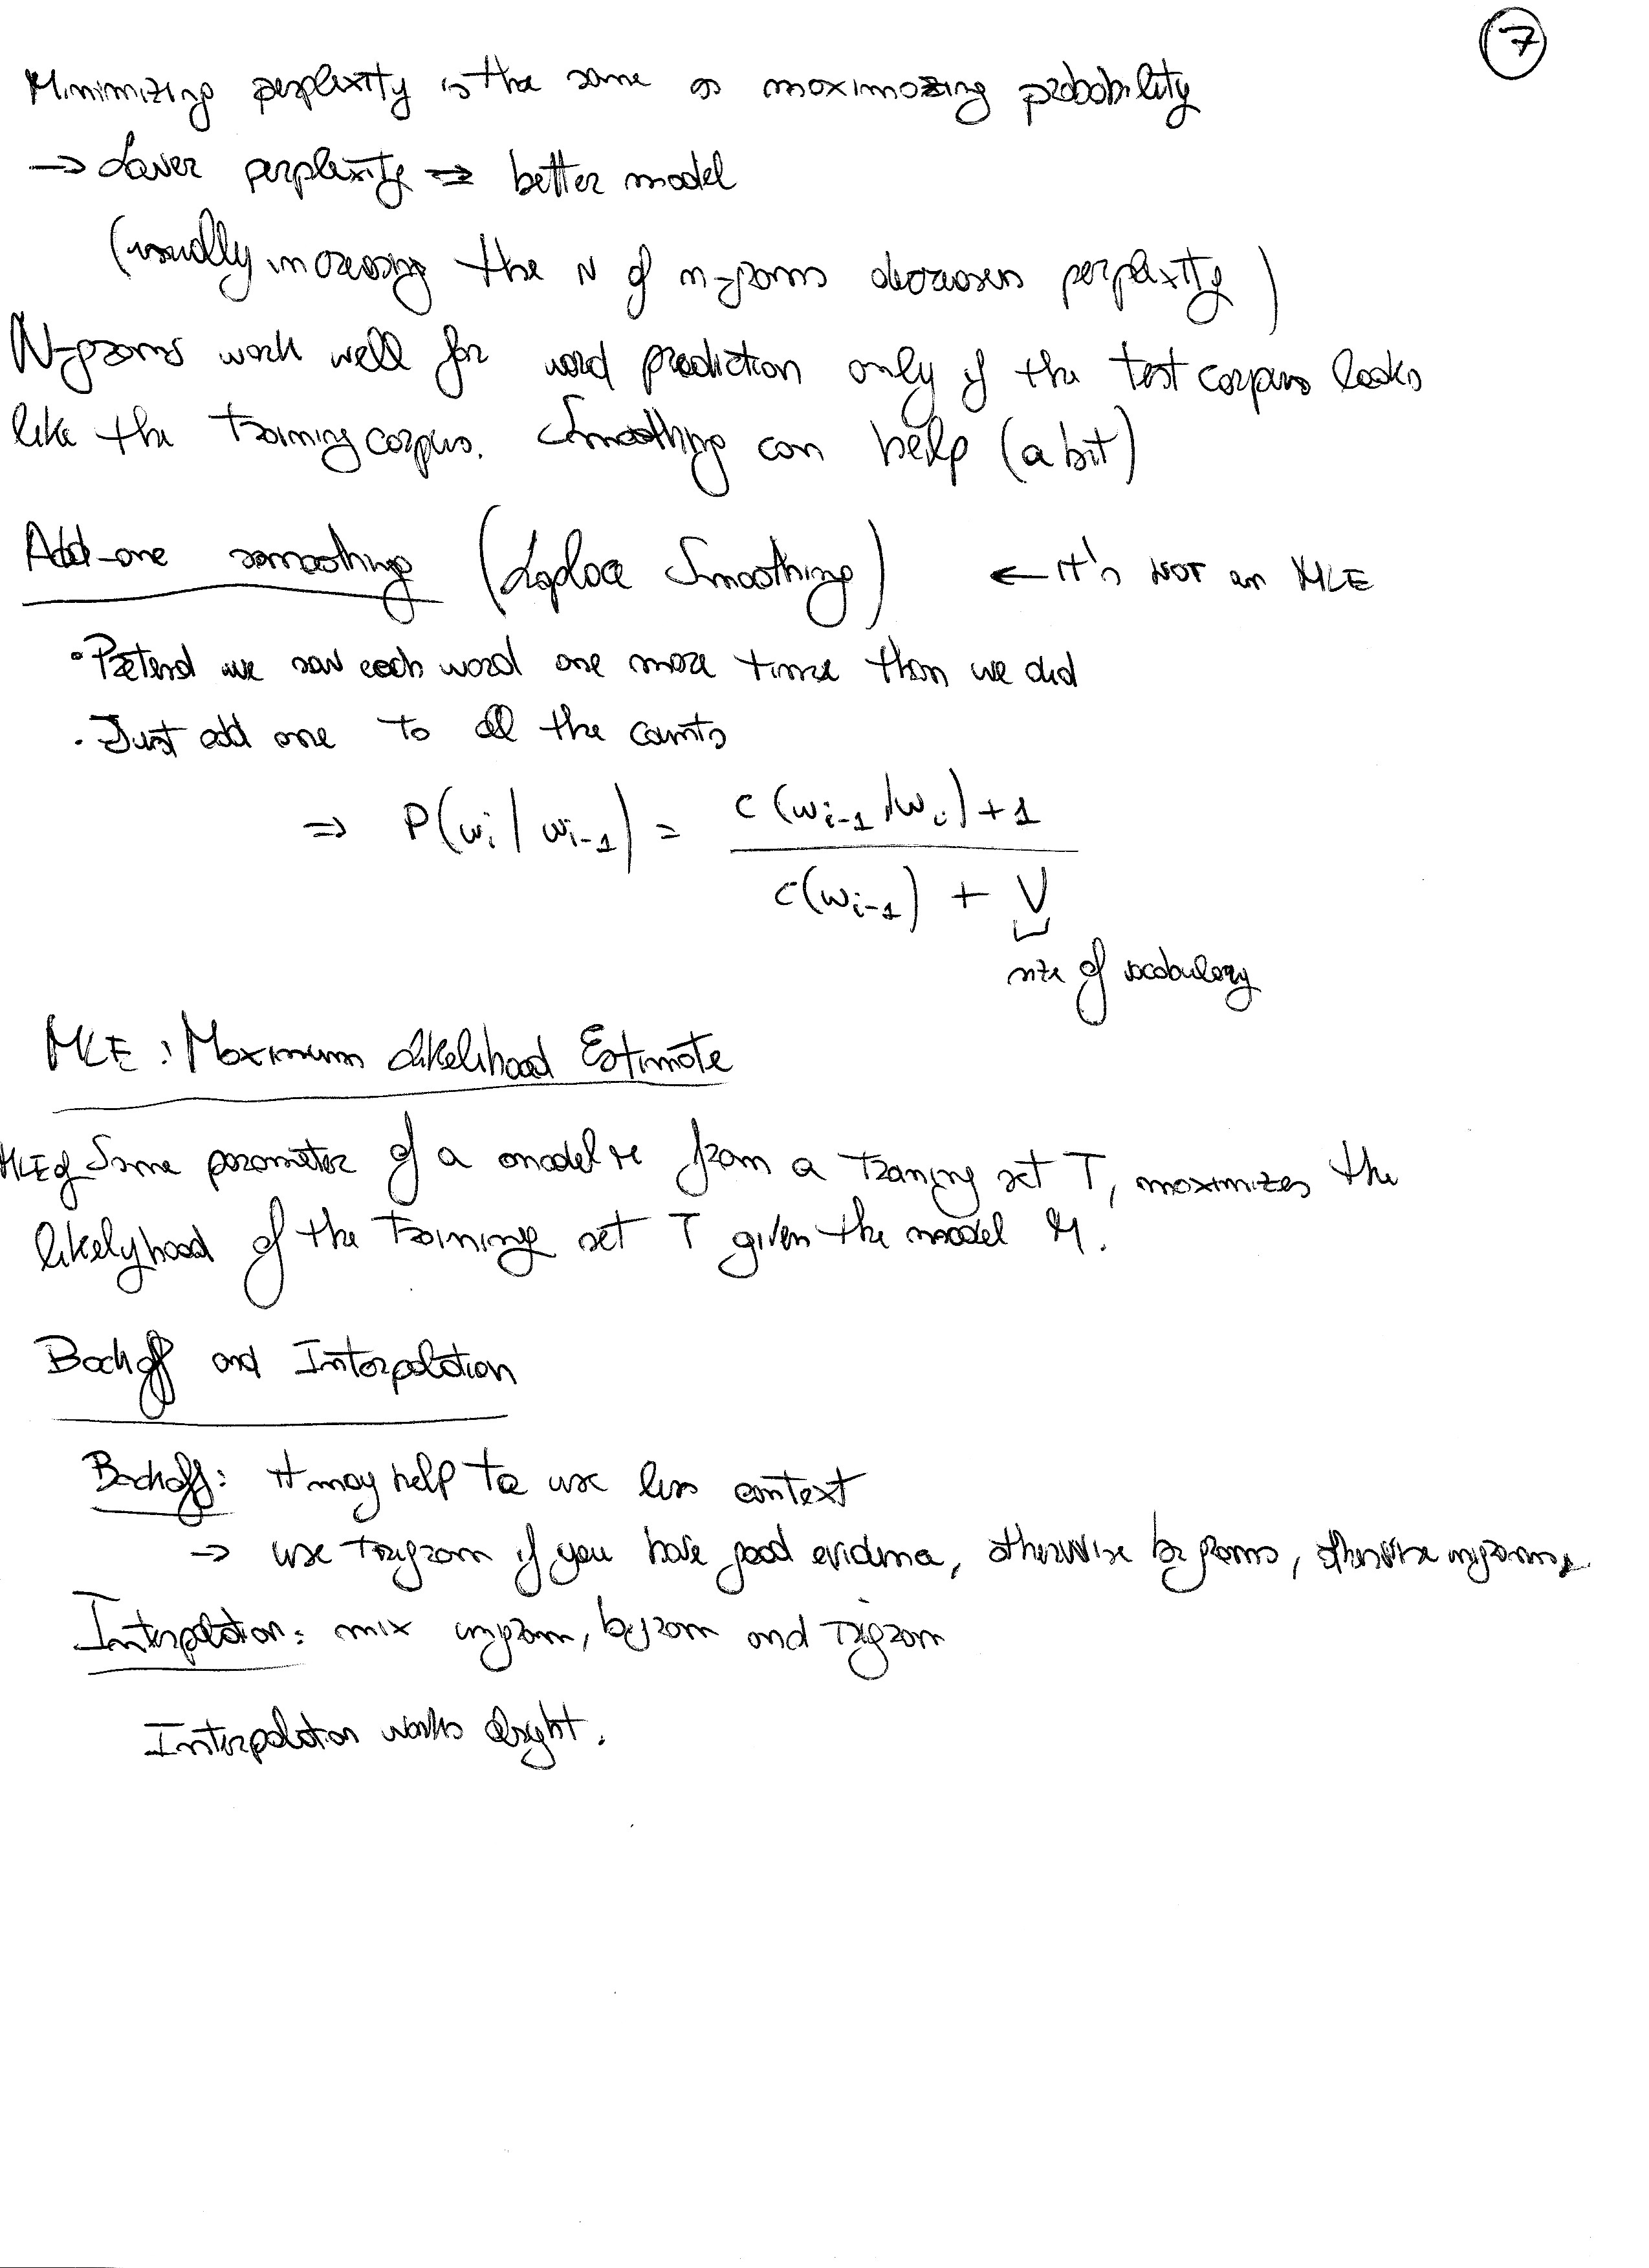 7
Minimizing perplexity is the same as maximazing probability
→ Lower perplexity ⇒ better model
(usually increasing the N of n-grams decreases perplexity)
N-grams work well for word prediction only if the test corpus looks
like the training corpus. Smoothing can help (a bit)
Add-one smoothing (Laplace Smoothing) ← it's NOT an MLE
• Pretend we saw each word one more time than we did
• Just add one to all the counts
⇒ P(wi | wi-1) = c(wi-1, wi) + 1
c(wi-1) + V
size of vocabulary
MLE: Maximum Likelihood Estimate
MLE of Some parameter of a model M from a training set T, maximizes the
likelyhood of the training set T given the model M.
Backoff and Interpolation
Backoff: it may help to use less context
→ use trigram if you have good evidence, otherwise bigrams, otherwise unigrams
Interpolation: mix unigram, bigram and trigram
Interpolation works alright.